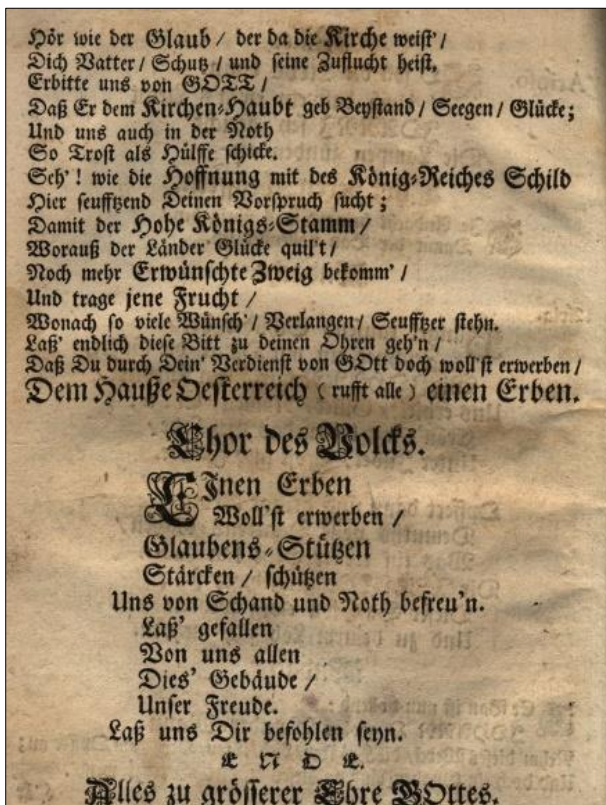 Hör wie der Glaub / der da die Kirche weist' /
Dich Vatter / Schutz / und seine Zuflucht heist,
Erbitte uns von GOTT /
Daß Er dem Kirchen-Haubt geb Beystand / Seegen / Glücke;
Und uns auch in der Noth
So Trost als Hülffe schicke.
Seh' ! wie die Hoffnung mit des König-Reiches Schild
Hier seufftzend Deinen Vorspruch sucht;
Damit der Hohe Königs-Stamm /
Worauß der Länder Glücke quil't /
Noch mehr Erwünschte Zweig bekomm' /
Und trage jene Frucht /
Wonach so viele Wünsch' / Verlangen / Seufftzer stehn.
Laß' endlich diese Bitt zu deinen Ohren geh'n /
Daß Du durch Dein' Verdienst von GOtt doch woll'st erwerben /
Dem Hauße Oesterreich ( rufft alle ) einen Erben.
Chor des Volcks.
EInen Erben
Woll'st erwerben /
Glaubens-Stützen
Stärcken / schützen
Uns von Schand und Noth befreu'n.
Laß' gefallen
Von uns allen
Dies' Gebäude /
Unser Freude.
Laß uns Dir befohlen seyn.
E N D E.
Alles zu grösserer Ehre GOttes.